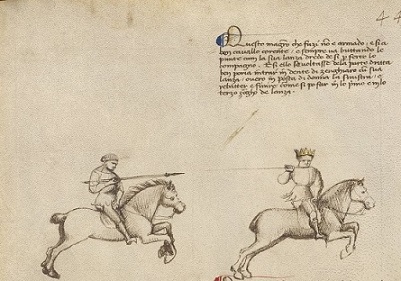 44
Questo magistro che fuzi non e armado. e si a
bon cavallo corente. e sempre va buttando le
punte cum la sua lanza dredo de si per ferir lo
compagno. E si ello se voltasse de la parte dritta
ben poria intrar in dente di zenghiaro cum sua
lanza. overo in posta di donna la sinistra. e
rebatter e finire come si po far in lo primo e in lo
terzo zogho de lanza.